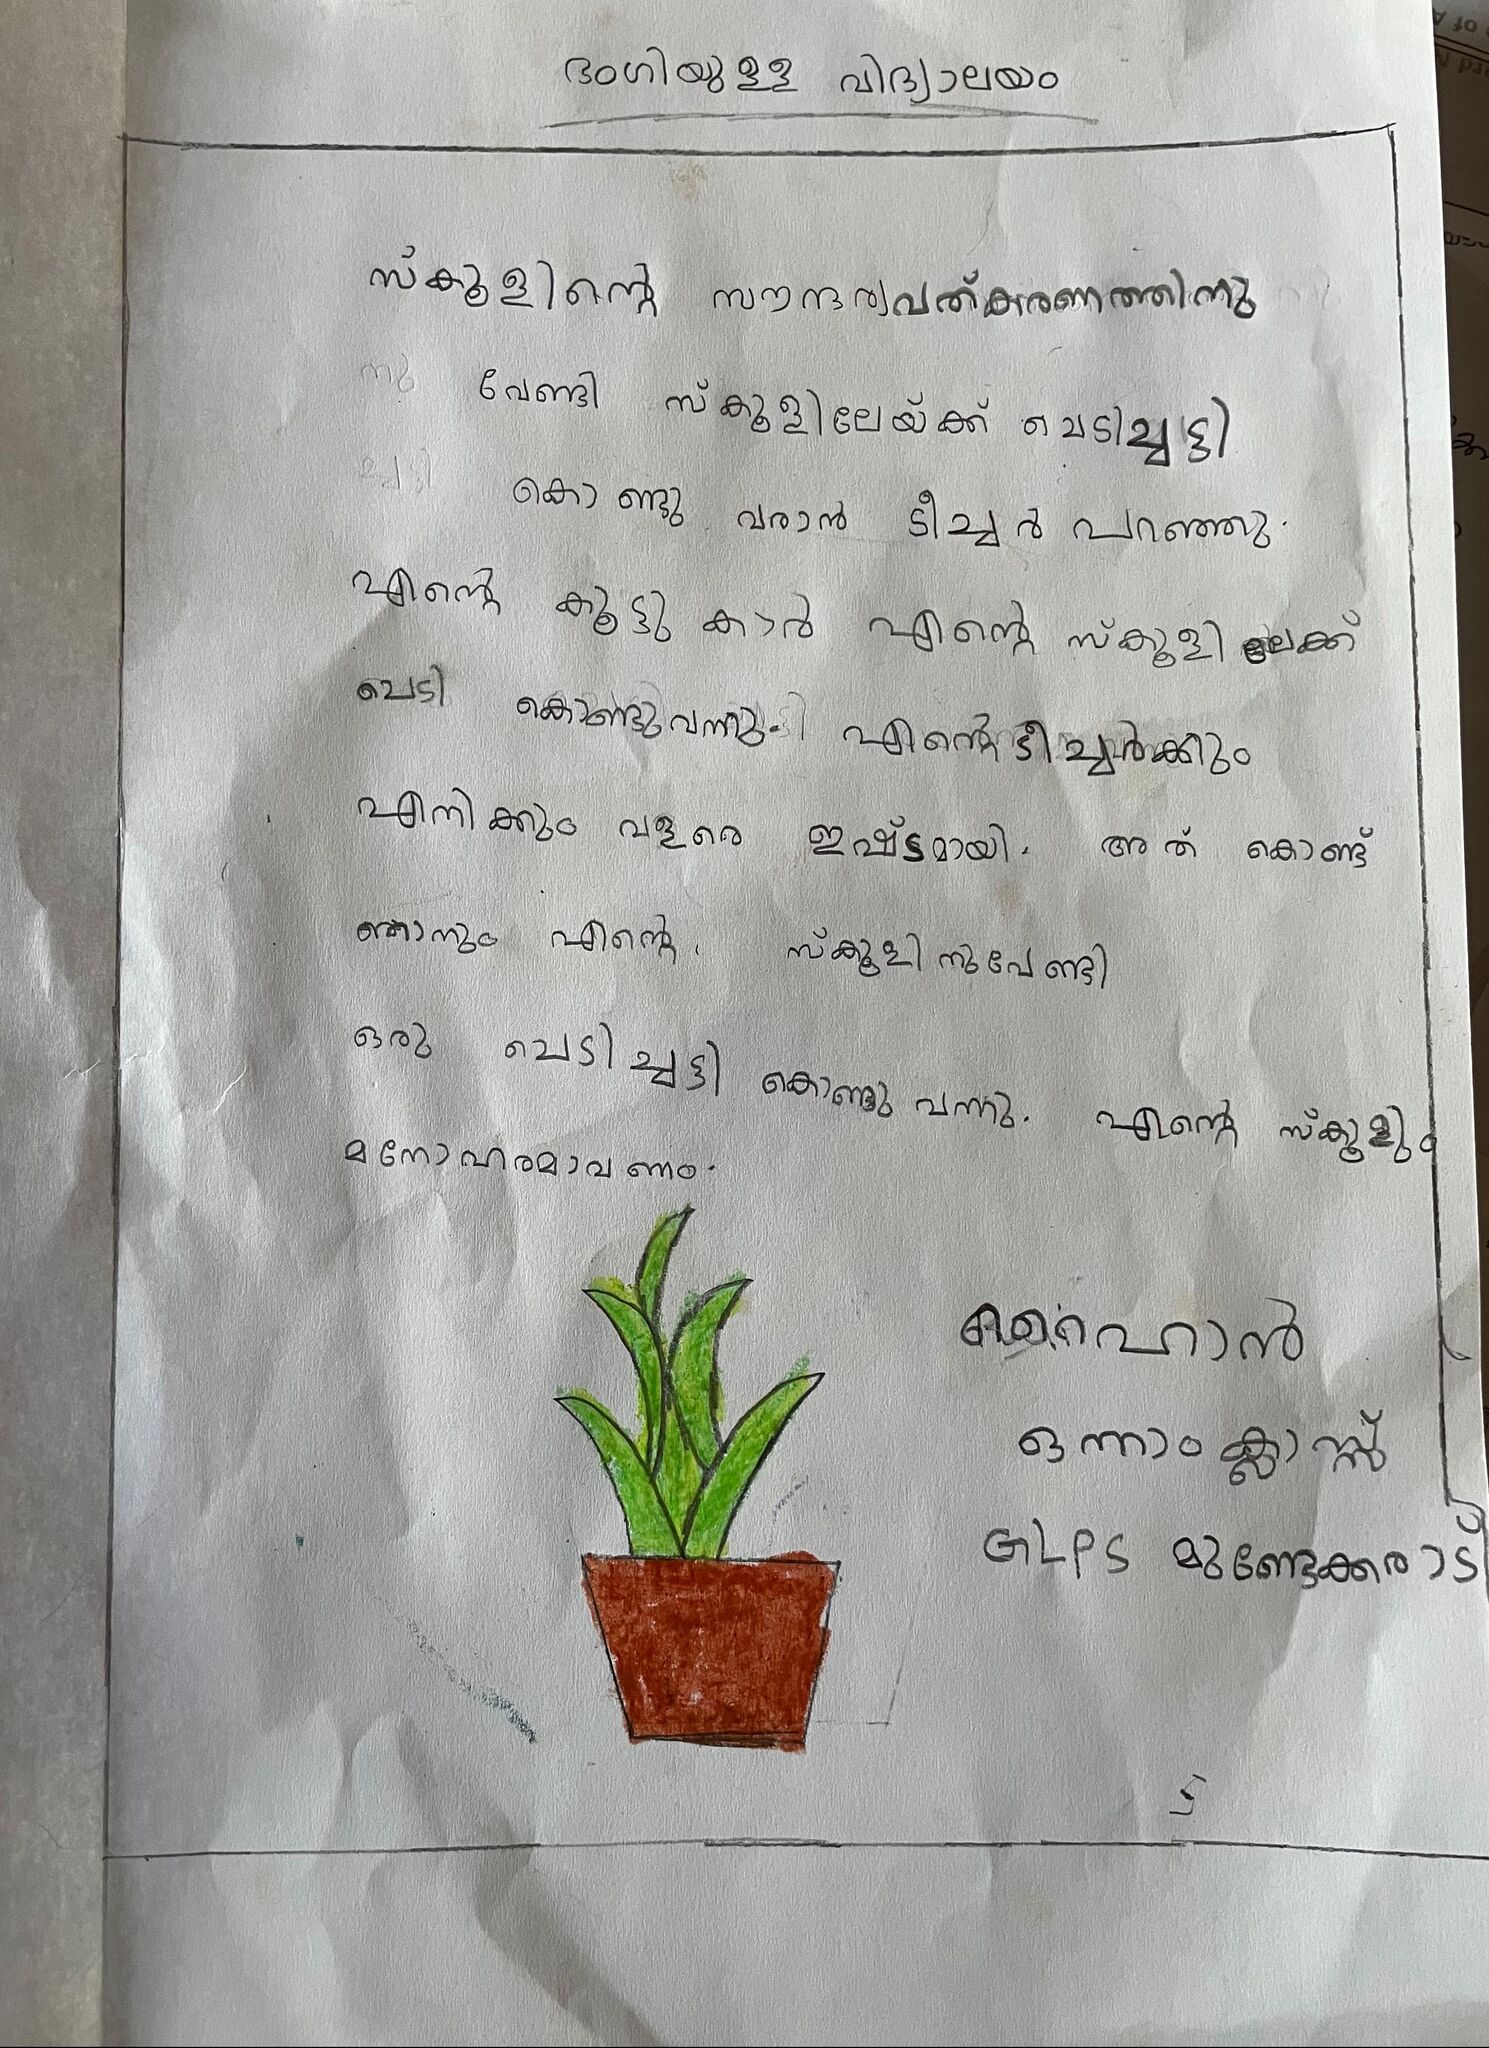 ഭംഗിയുള്ള വിദ്യാലയം
സ്കൂളിന്റെ സൗന്ദര്യവത്കരണത്തിനു
വേണ്ടി സ്കൂളിലേയ്ക്ക് ചെടിച്ചട്ടി
കൊണ്ടു വരാൻ ടീച്ചർ പറഞ്ഞു.
എന്റെ കൂട്ടുകാർ എന്റെ സ്കൂളിലേക്ക്
ചെടി കൊണ്ടുവന്നു. എന്റെ ടീച്ചർക്കും
എനിക്കും വളരെ ഇഷ്ട്ടമായി. അത് കൊണ്ട്
ഞാനും എന്റെ. സ്കൂളിനുവേണ്ടി
ഒരു ചെടിച്ചട്ടി കൊണ്ടു വന്നു. എന്റെ സ്കൂളും
മനോഹരമാവണം.
ഒന്നാം ക്ലാസ്സ്
GLPS മുണ്ടേക്കരാട്
5